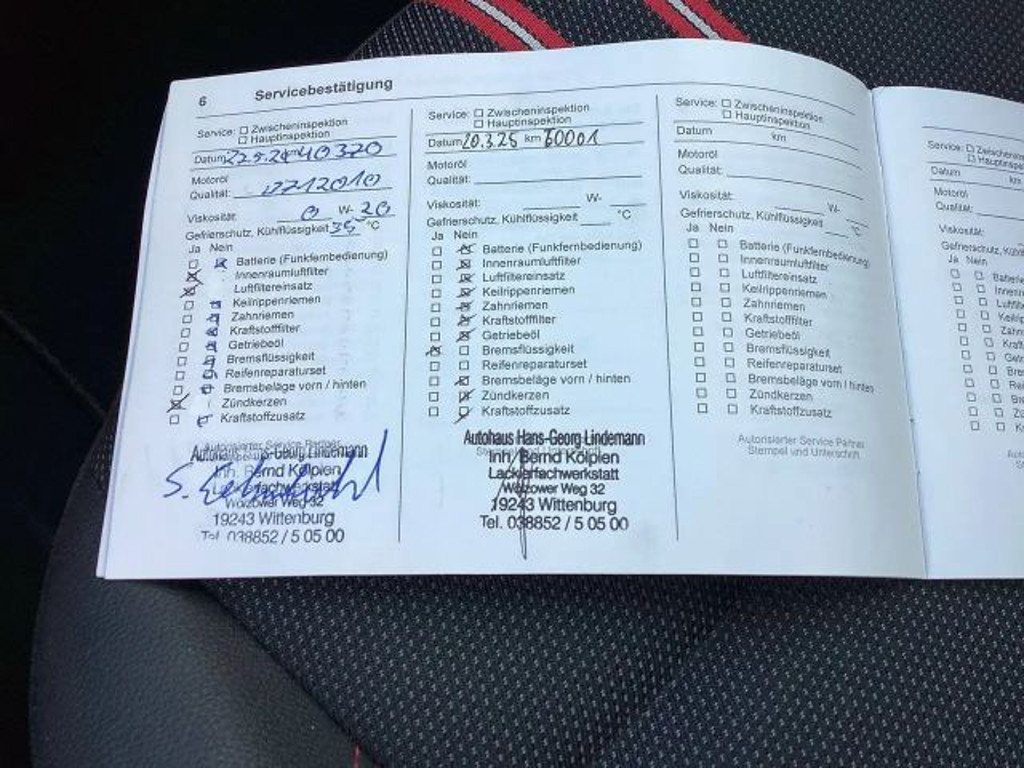 6 Servicebestätigung
Service: Zwischeninspektion
Hauptinspektion
Datum 22.5.24 km 40320
Motoröl
Qualität:
Viskosität: 0 W- 20
Gefrierschutz, Kühlflüssigkeit 35 °C
Ja Nein
Batterie (Funkfernbedienung)
Innenraumluftfilter
Luftfiltereinsatz
Keilrippenriemen
Zahnriemen
Kraftstofffilter
Getriebeöl
Bremsflüssigkeit
Reifenreparaturset
Bremsbeläge vorn / hinten
Zündkerzen
Kraftstoffzusatz
Autorisierter Service Partner
Autohaus Hans-Georg Lindemann
Inh. Bernd Kölpien
Lackierfachwerkstatt
Wölzower Weg 32
19243 Wittenburg
Tel. 038852 / 5 05 00
Service: Zwischeninspektion
Hauptinspektion
Datum 20.3.25 km 60001
Motoröl
Qualität:
Viskosität: W-
Gefrierschutz, Kühlflüssigkeit °C
Ja Nein
Batterie (Funkfernbedienung)
Innenraumluftfilter
Luftfiltereinsatz
Keilrippenriemen
Zahnriemen
Kraftstofffilter
Getriebeöl
Bremsflüssigkeit
Reifenreparaturset
Bremsbeläge vorn / hinten
Zündkerzen
Kraftstoffzusatz
Autohaus Hans-Georg Lindemann
Inh. Bernd Kölpien
Lackierfachwerkstatt
Wölzower Weg 32
19243 Wittenburg
Tel. 038852 / 5 05 00
Service: Zwischeninspektion
Hauptinspektion
Datum km
Motoröl
Qualität:
Viskosität: W-
Gefrierschutz, Kühlflüssigkeit °C
Ja Nein
Batterie (Funkfernbedienung)
Innenraumluftfilter
Luftfiltereinsatz
Keilrippenriemen
Zahnriemen
Kraftstofffilter
Getriebeöl
Bremsflüssigkeit
Reifenreparaturset
Bremsbeläge vorn / hinten
Zündkerzen
Kraftstoffzusatz
Autorisierter Service Partner
Stempel und Unterschrift
Service: Zwischenins
Hauptinspe
Datum km
Motoröl
Qualität:
Viskosität:
Gefrierschutz, Kühl
Ja Nein